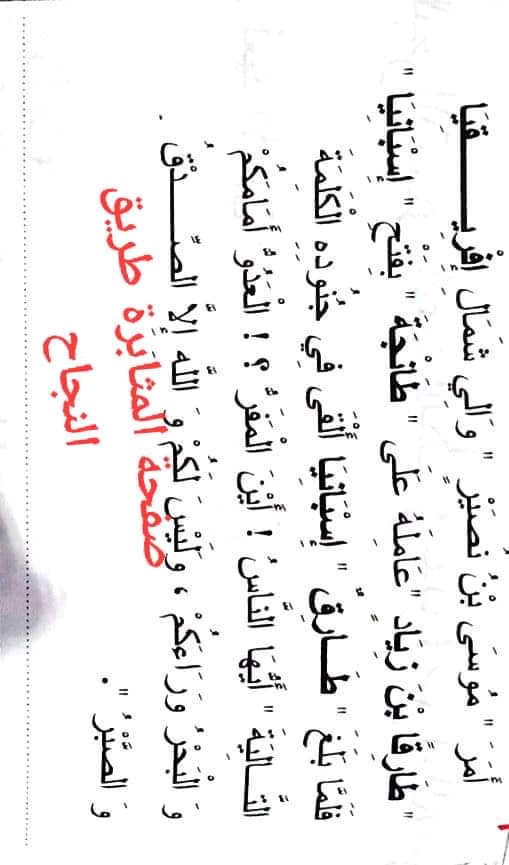 أَمَرَ " مُوسَى بْنُ نُصَيْرْ " وَالِي شَمَالِ اِفْرِيـــــقِيَا
" طَارِقًا بْنَ زِيَاد " عَامِلَهُ عَلَى " طَانْجَة " بِفَتْحِ " إِسْبَانِيَا "
فَلَمَّا بَلَغَ " طَــارِقٌ " إِسْبَانِيَا أَلْقَى فِي جُنُودِهِ الْكَلِمَةَ
التَّــالِيَةَ " أَيُّهَا النَّاسُ ! أَيْنَ الْمَفَرُّ ؟ ! الْعَدُوُّ أَمَامَكُمْ
وَ الْبَحْرُ وَرَاءَكُمْ ، وَلَيْسَ لَكُمْ وَ اللَّهِ إِلَّا الصِّـــدْقُ .
وَ الصَّبْرُ " .
صفحة المثابرة طريق
النجاح